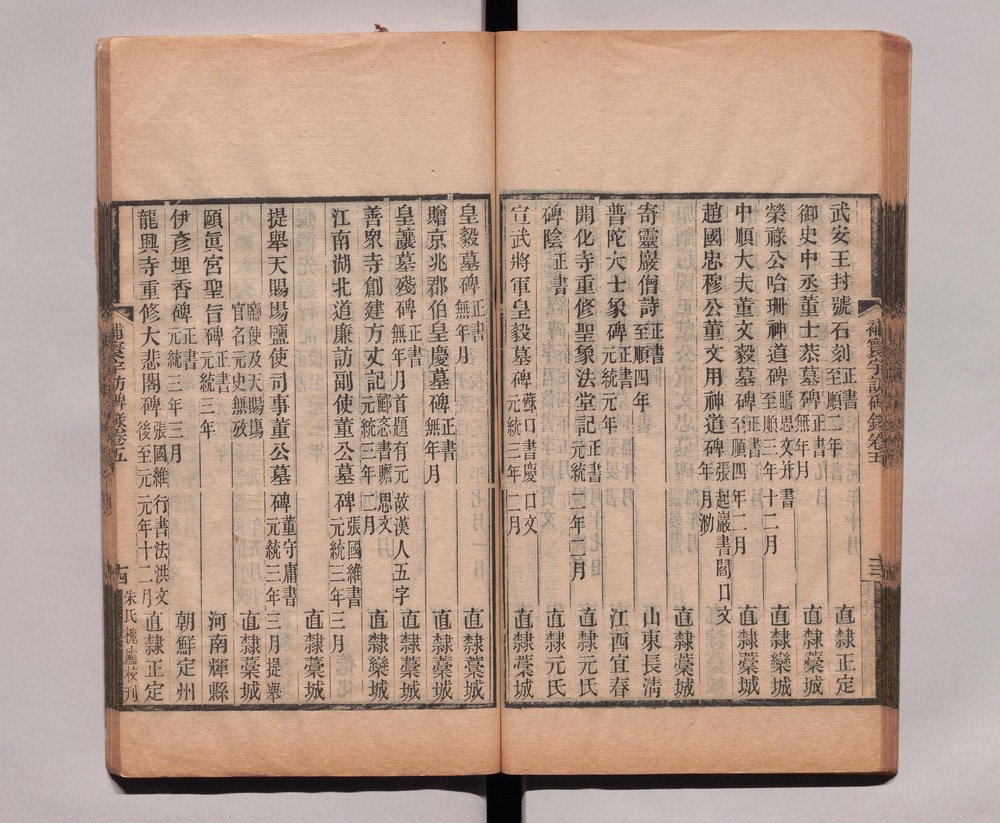 武安王封號石刻 正書 至順二年 直隸正定
御史中丞董士恭墓碑 正書 無年月 直隸藁城
榮祿公哈珊神道碑 贍思文并書 至順三年十二月 直隸欒城
中順大夫董文毅墓碑 正書 至順四年二月 直隸藁城
趙國忠穆公董文用神道碑 張起巖書閻口文 年月泐
直隸藁城
寄靈巖侑詩 正書 至順四年 山東長淸
普陀大士象碑 正書 元統元年 江西宜春
開化寺重修聖象法堂記 正書 元統二年二月 直隸元氏
碑陰 正書 直隸元氏
宣武將軍皇毅墓碑 蘇口書慶口文 元統三年二月 直隸藁城
皇毅墓碑 正書 無年月 直隸藁城
贈京兆郡伯皇慶墓碑 正書 無年月 直隸藁城
皇讓墓殘碑 正書 無年月首題有元故漢人五字 直隸藁城
善衆寺創建方丈記 郦忞書贍思文 元統三年二月 直隸欒城
江南湖北道廉訪副使董公墓碑 張國維書 元統三年三月
直隸藁城
提舉天賜場鹽使司事董公墓碑 董守庸書 元統三年三月提舉
鹽使及天賜場官名元史無攷 直隸藁城
頤眞宮聖旨碑 正書 元統三年 河南輝縣
伊彥埋香碑 正書 元統三年三月 朝鮮定州
龍興寺重修大悲閣碑 張國維行書法洪文 後至元元年十二月 直隸正定
補寰宇訪碑錄卷五
十三
補寰宇訪碑錄卷五
十四
朱氏槐廬校刊